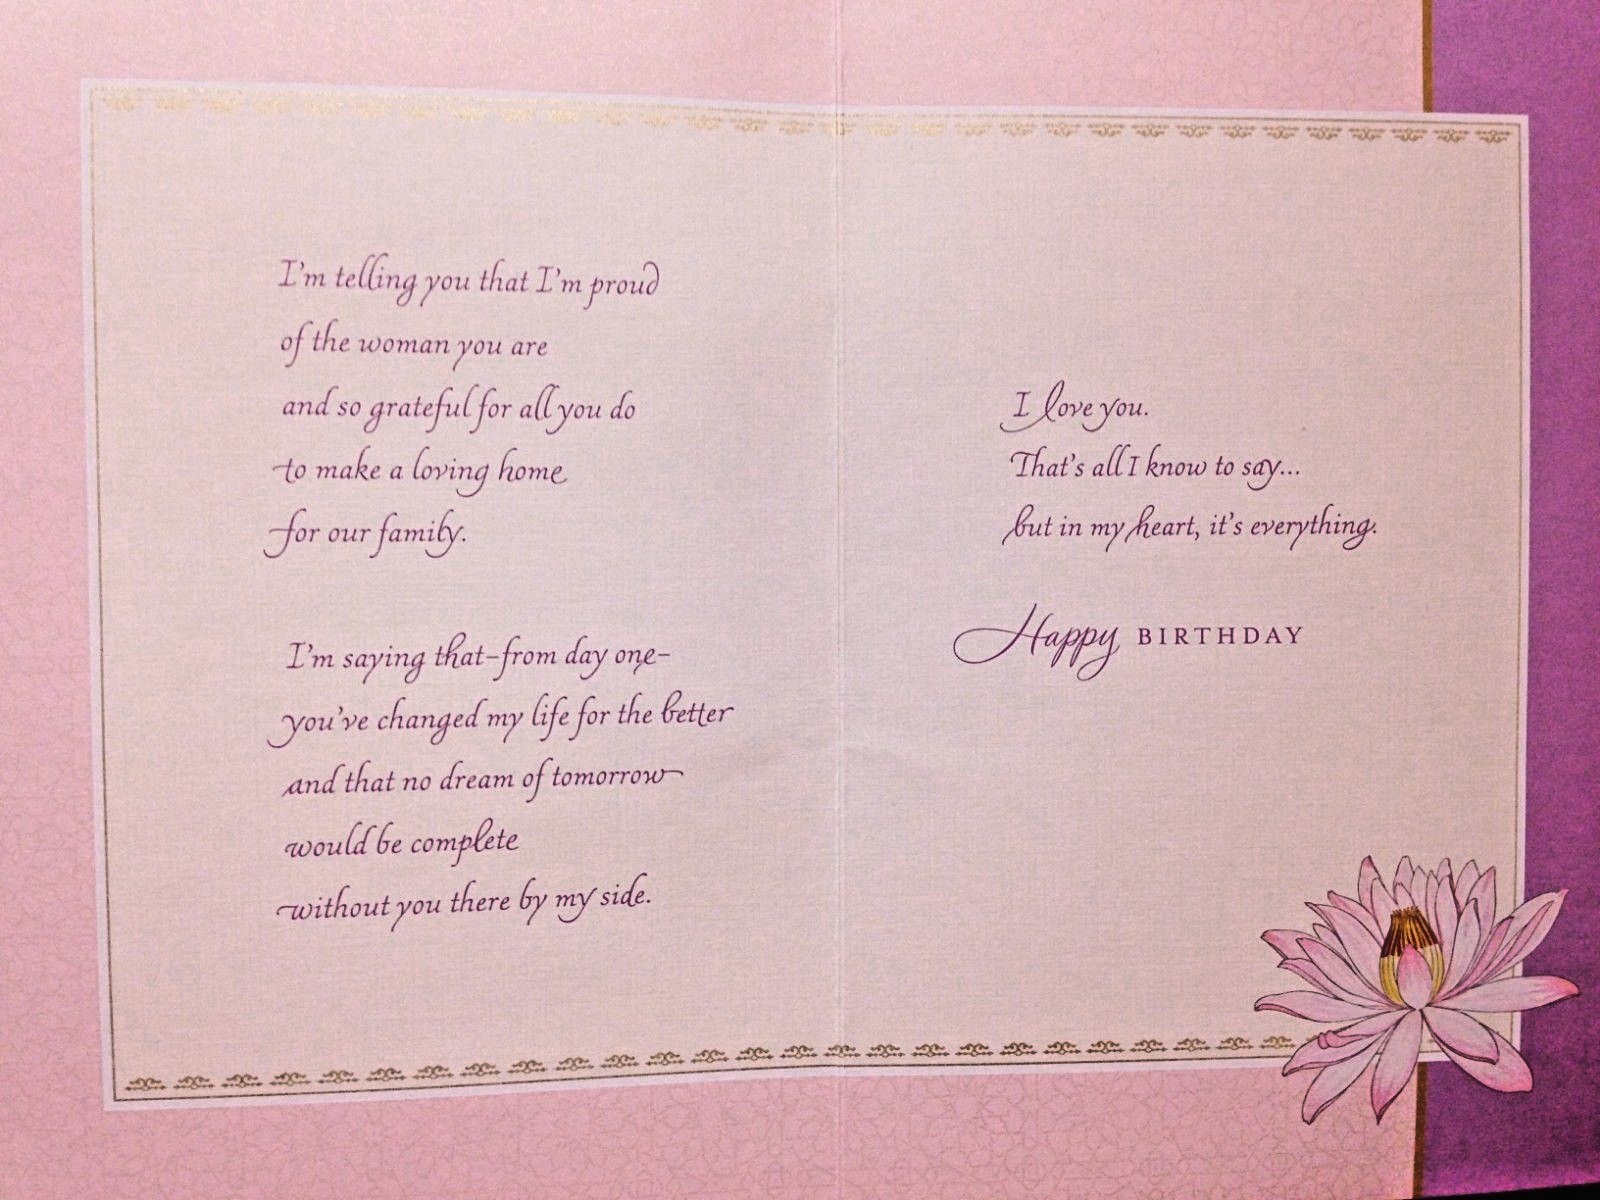 I'm telling you that I'm proud
of the woman you are
and so grateful for all you do
to make a loving home
for our family.
I'm saying that–from day one–
you've changed my life for the better
and that no dream of tomorrow
would be complete
without you there by my side.
I love you.
That's all I know to say...
but in my heart, it's everything.
Happy BIRTHDAY